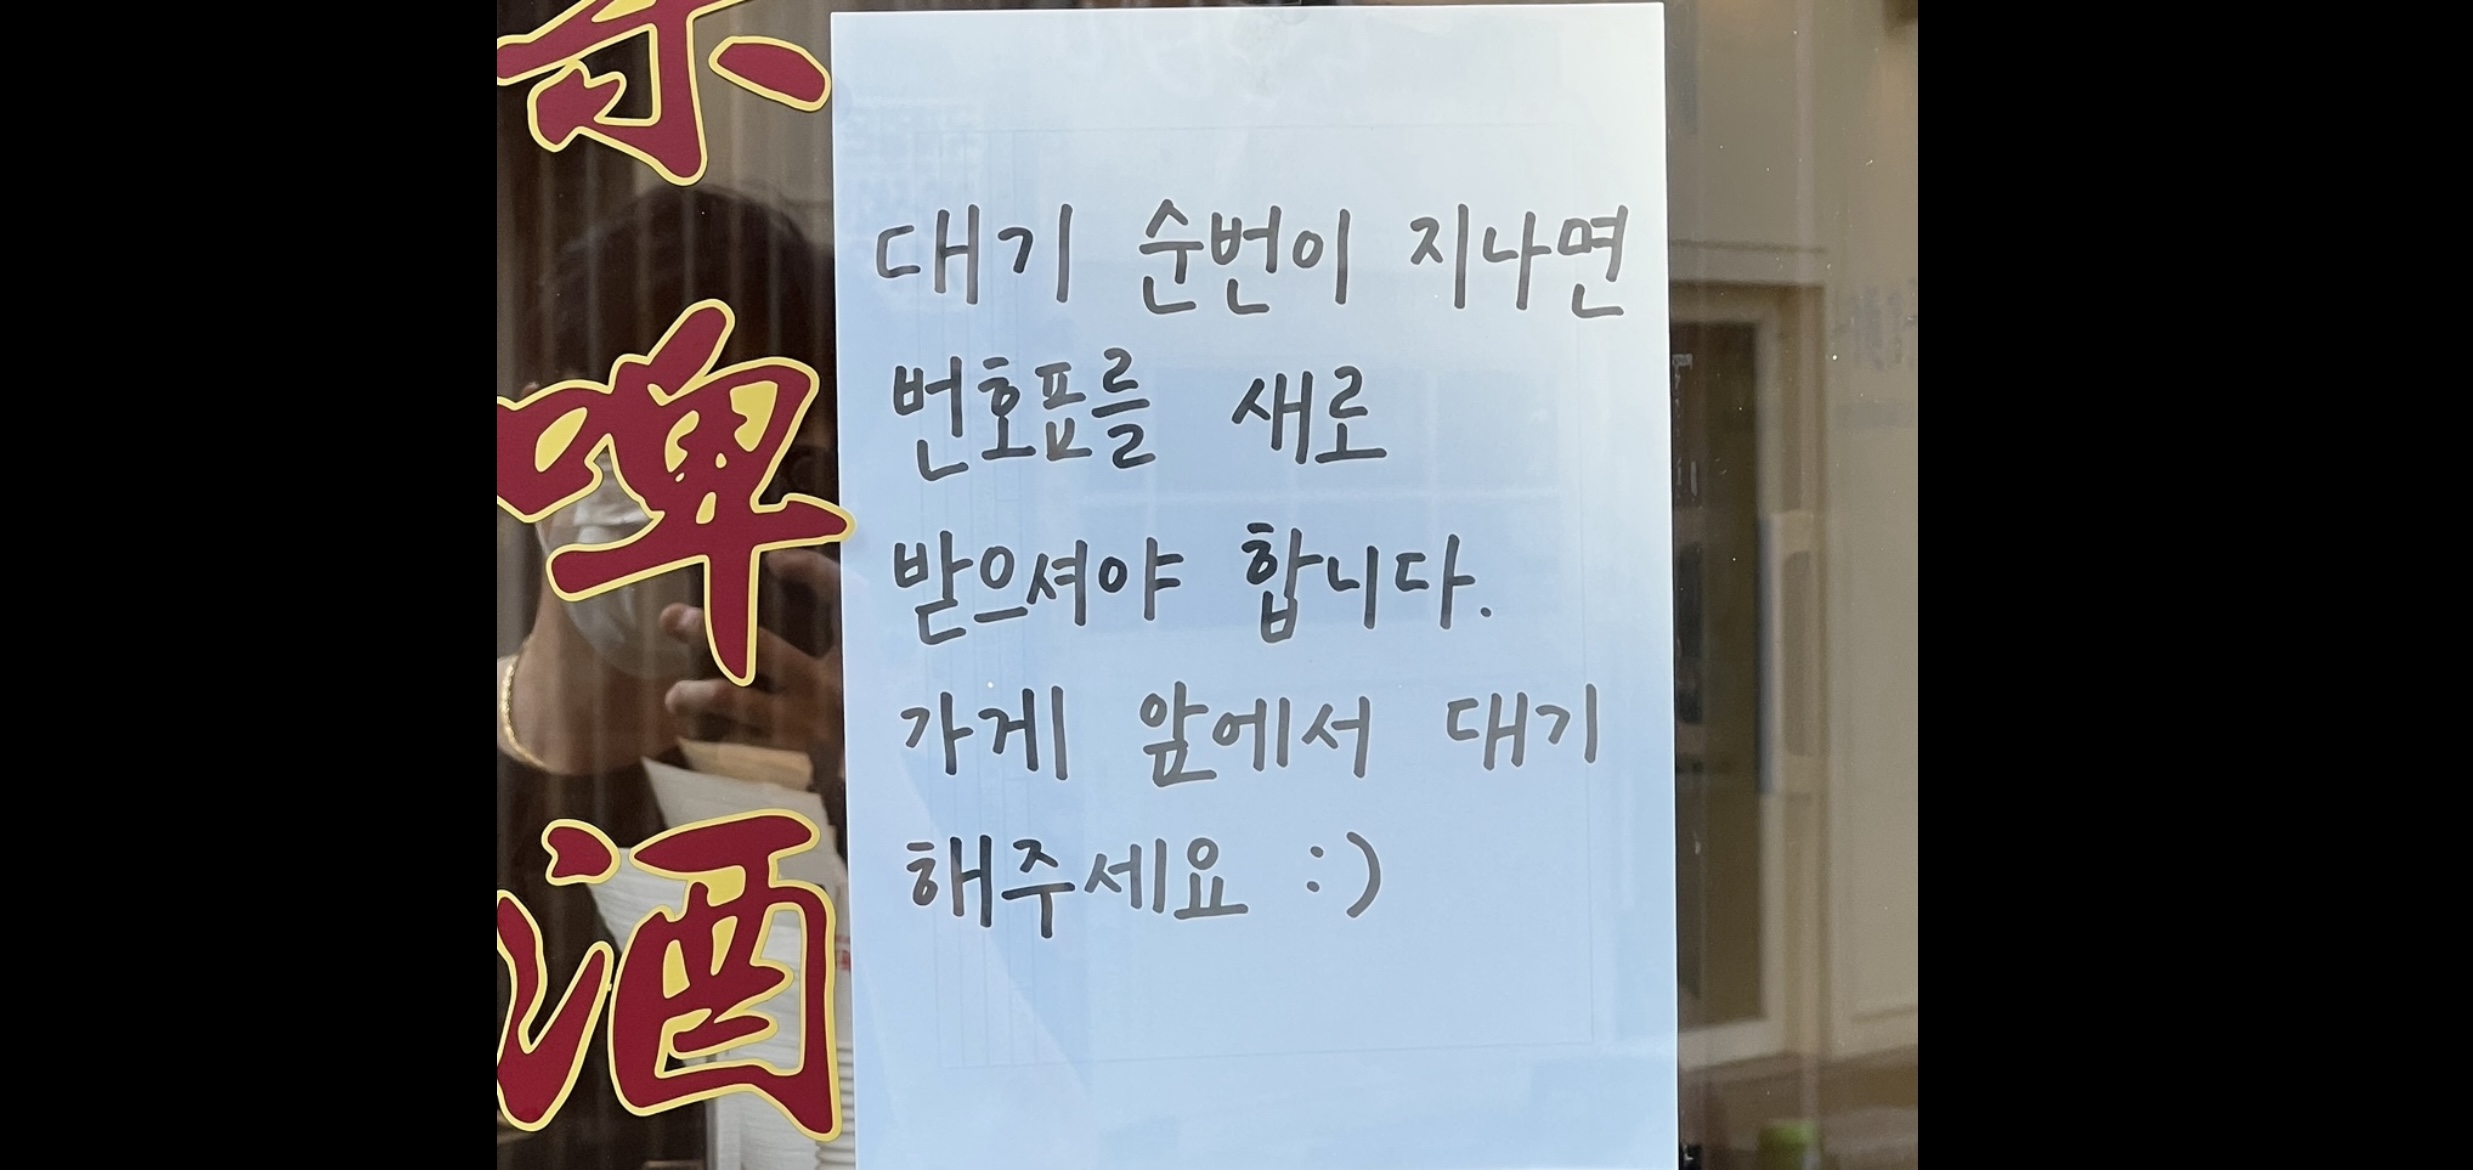 啤
酒
대기 순번이 지나면
번호표를 새로
받으셔야 합니다.
가게 앞에서 대기
해주세요 :)